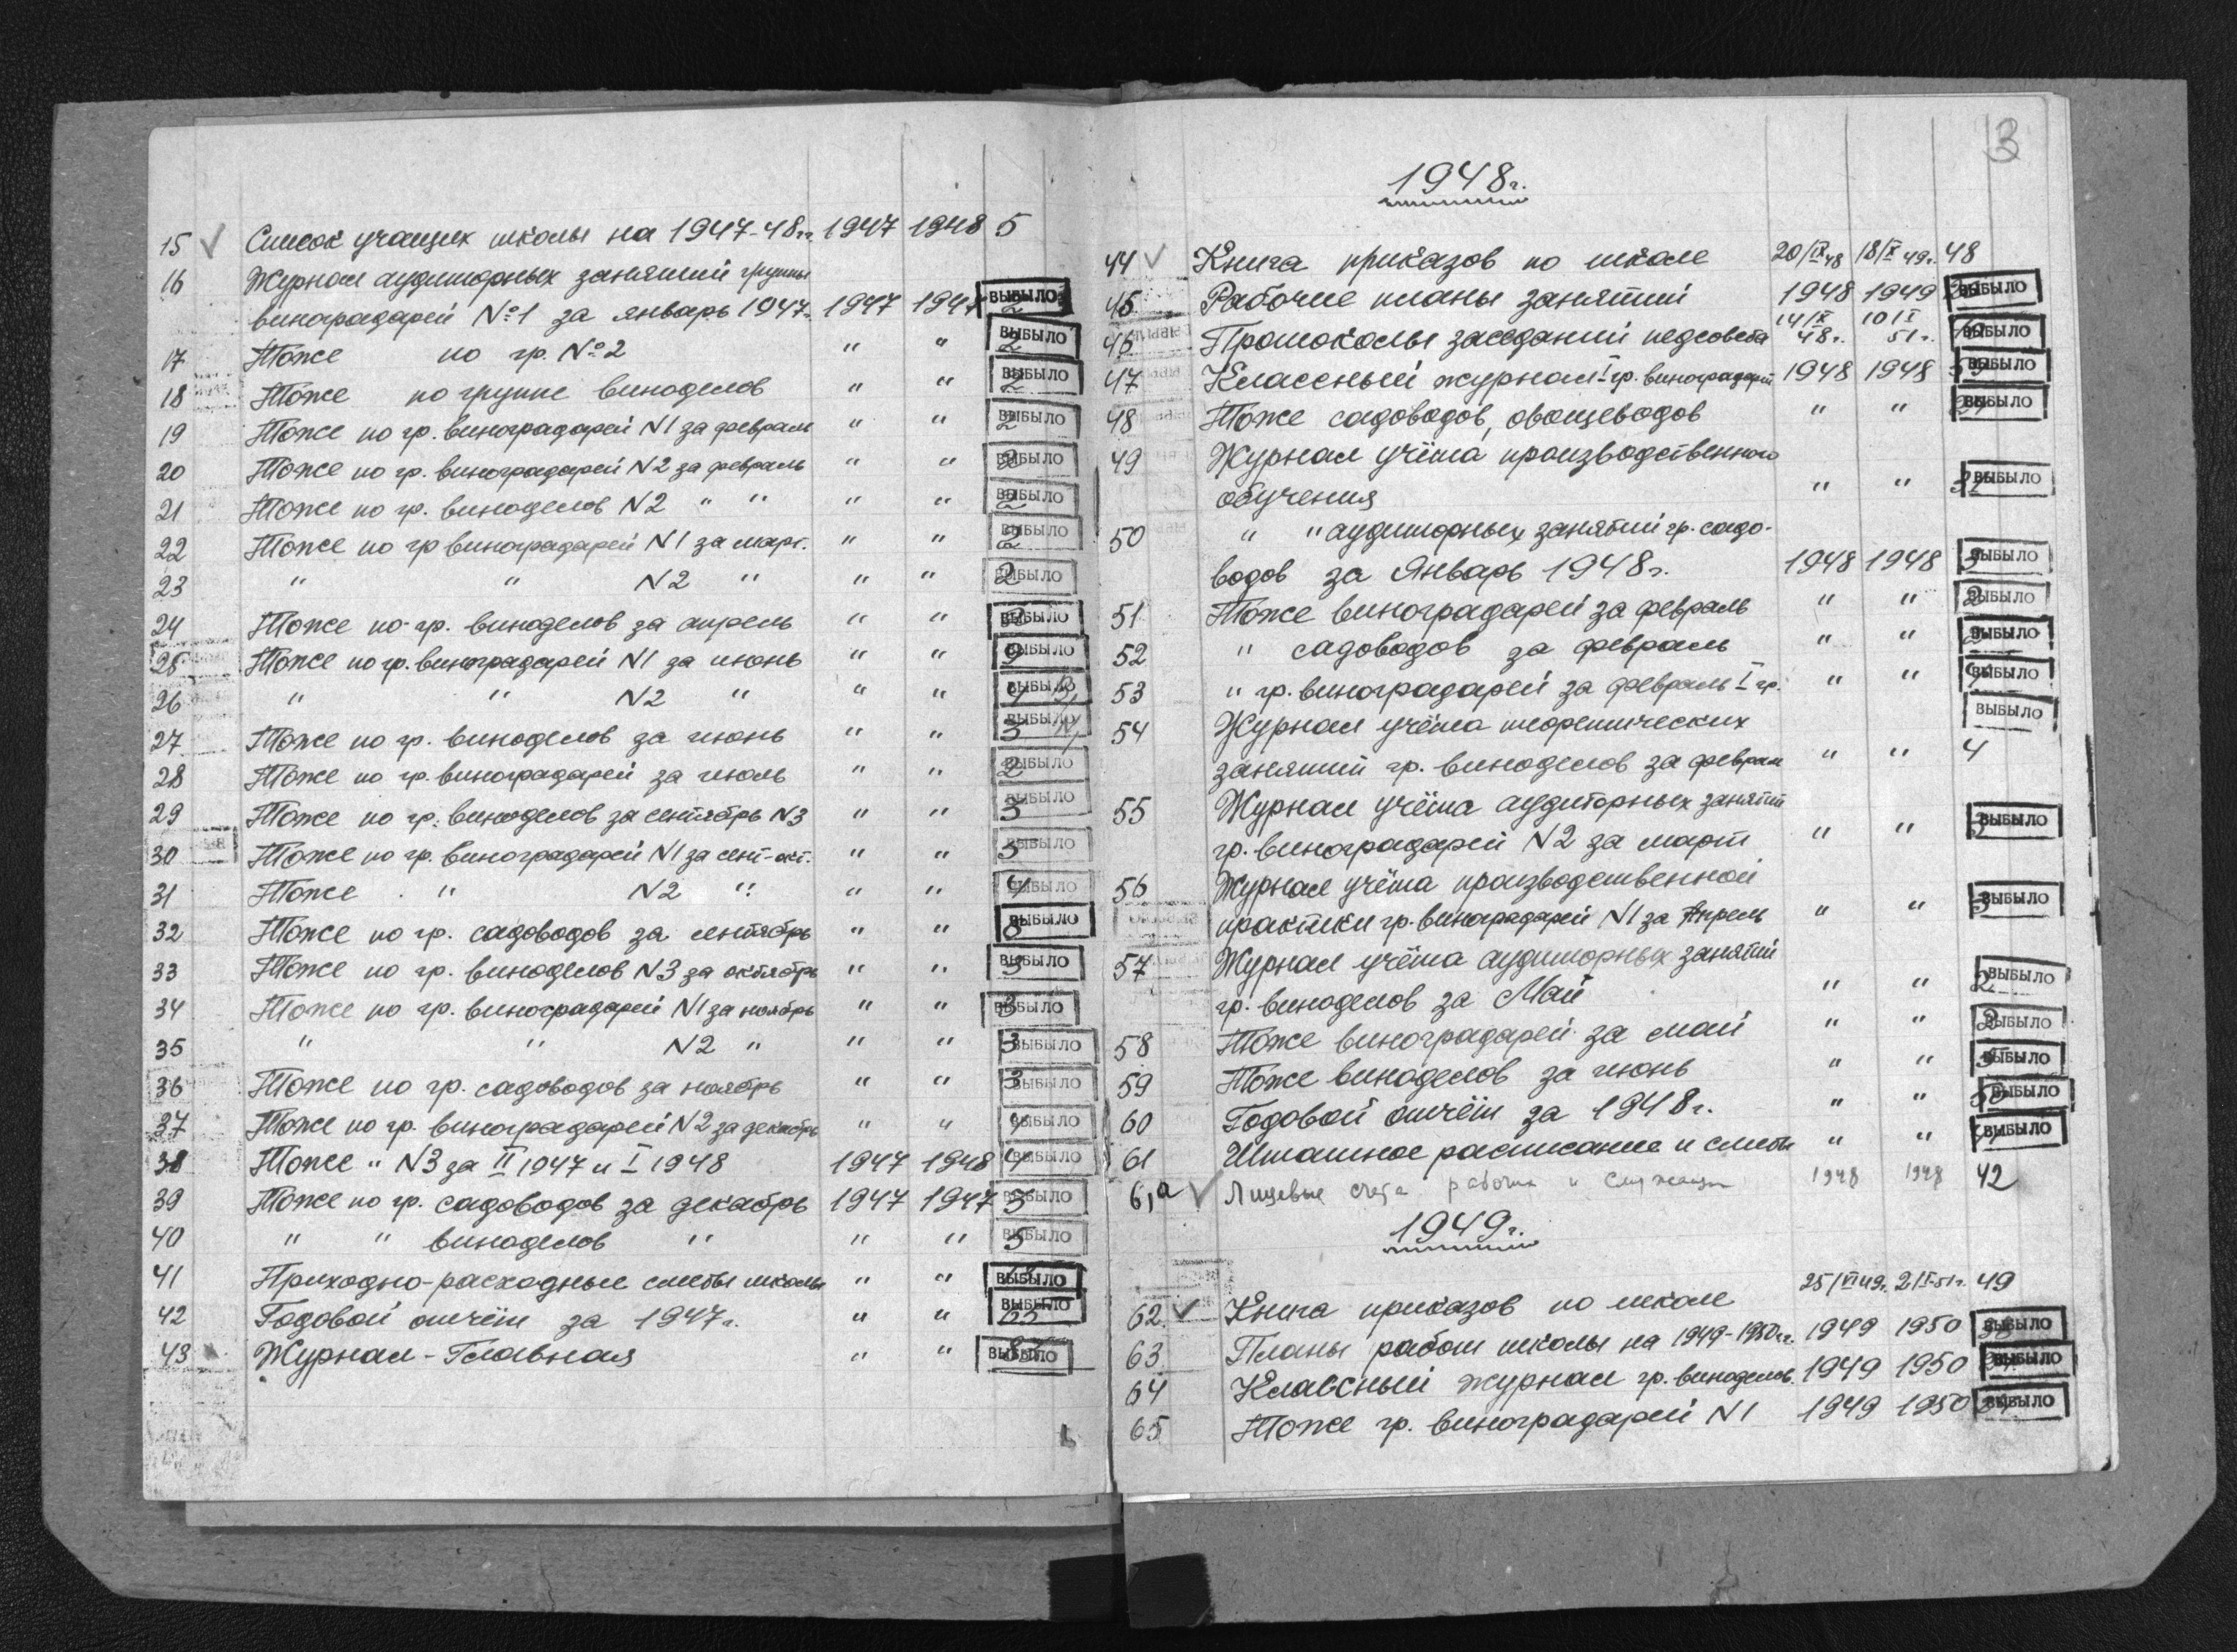 15 ✓ Список учащих школы на 1947-48гг. 1947 1948 5
16 Журнал аудиторных занятий группы
виноградарей №1 за январь 1947г. 1947 1947 2 ВЫБЫЛО
17 Тоже по гр. №2 " " 2 ВЫБЫЛО
18 Тоже по группе виноделов " " 2 ВЫБЫЛО
19 Тоже по гр. виноградарей N1 за февраль " " 2 ВЫБЫЛО
20 Тоже по гр. виноградарей N2 за февраль " " 2 ВЫБЫЛО
21 Тоже по гр. виноделов N2 " " " " 2 ВЫБЫЛО
22 Тоже по гр виноградарей N1 за март. " " 2 ВЫБЫЛО
23 " " N2 " " " 2 ВЫБЫЛО
24 Тоже по гр. виноделов за апрель " " ВЫБЫЛО
25 Тоже по гр. виноградарей N1 за июнь " " ВЫБЫЛО
26 " " N2 " " " ВЫБЫЛО
27 Тоже по гр. виноделов за июнь " " 3 ВЫБЫЛО
28 Тоже по гр. виноградарей за июль " " 2 ВЫБЫЛО
29 Тоже по гр. виноделов за сентябрь N3 " " 3 ВЫБЫЛО
30 Тоже по гр. виноградарей N1 за сент-окт. " " 3 ВЫБЫЛО
31 Тоже " N2 " " " 4 ВЫБЫЛО
32 Тоже по гр. садоводов за сентябрь " " ВЫБЫЛО
33 Тоже по гр. виноделов N3 за октябрь " " 3 ВЫБЫЛО
34 Тоже по гр. виноградарей N1 за ноябрь " " 3 ВЫБЫЛО
35 " " N2 " " " 3 ВЫБЫЛО
36 Тоже по гр. садоводов за ноябрь " " 3 ВЫБЫЛО
37 Тоже по гр. виноградарей N2 за декабрь " " 4 ВЫБЫЛО
38 Тоже " N3 за II 1947 и I 1948 1947 1948 4 ВЫБЫЛО
39 Тоже по гр. садоводов за декабрь 1947 1947 3 ВЫБЫЛО
40 " " виноделов " " " 5 ВЫБЫЛО
41 Приходно-расходные сметы школы " " ВЫБЫЛО
42 Годовой отчёт за 1947г. " " 63 ВЫБЫЛО
43 Журнал-Главная " " ВЫБЫЛО
3
1948г.
44 ✓ Книга приказов по школе 20/IX 48 18/X 49г. 48
45 Рабочие планы занятий 1948 1949 ВЫБЫЛО
46 Протоколы заседаний педсовета 14/IX 48г. 10 I 51г. ВЫБЫЛО
47 Классный журнал I гр. виноградарей 1948 1948 ВЫБЫЛО
48 Тоже садоводов, овощеводов " " ВЫБЫЛО
49 Журнал учёта производственного
обучения " " ВЫБЫЛО
50 " " аудиторных занятий гр. садо-
водов за Январь 1948г. 1948 1948 3 ВЫБЫЛО
51 Тоже виноградарей за февраль " " 2 ВЫБЫЛО
52 " садоводов за февраль " " ВЫБЫЛО
53 " гр. виноградарей за февраль I гр. " " 4 ВЫБЫЛО
54 Журнал учёта теоретических ВЫБЫЛО
занятий гр. виноделов за феврал " " 4
55 Журнал учёта аудиторных занятий
гр. виноградарей N2 за март " " 3 ВЫБЫЛО
56 Журнал учёта производственной
практики гр. виноградарей N1 за Апрель " " 3 ВЫБЫЛО
57 Журнал учёта аудиторных занятий
гр. виноделов за Май " " 2 ВЫБЫЛО
58 Тоже виноградарей за май " " 2 ВЫБЫЛО
59 Тоже виноделов за июнь " " ВЫБЫЛО
60 Годовой отчёт за 1948г. " " ВЫБЫЛО
61 Штатное расписание и сметы " " ВЫБЫЛО
61а ✓ Лицевые счета рабочих и служащих 1948 1948 42
1949г.
62. ✓ Книга приказов по школе 25/VI 49г. 2/I-51г. 49
63 Планы работ школы на 1949-1950гг. 1949 1950 ВЫБЫЛО
64 Классный журнал гр. виноделов. 1949 1950 ВЫБЫЛО
65 Тоже гр. виноградарей N1 1949 1950 ВЫБЫЛО